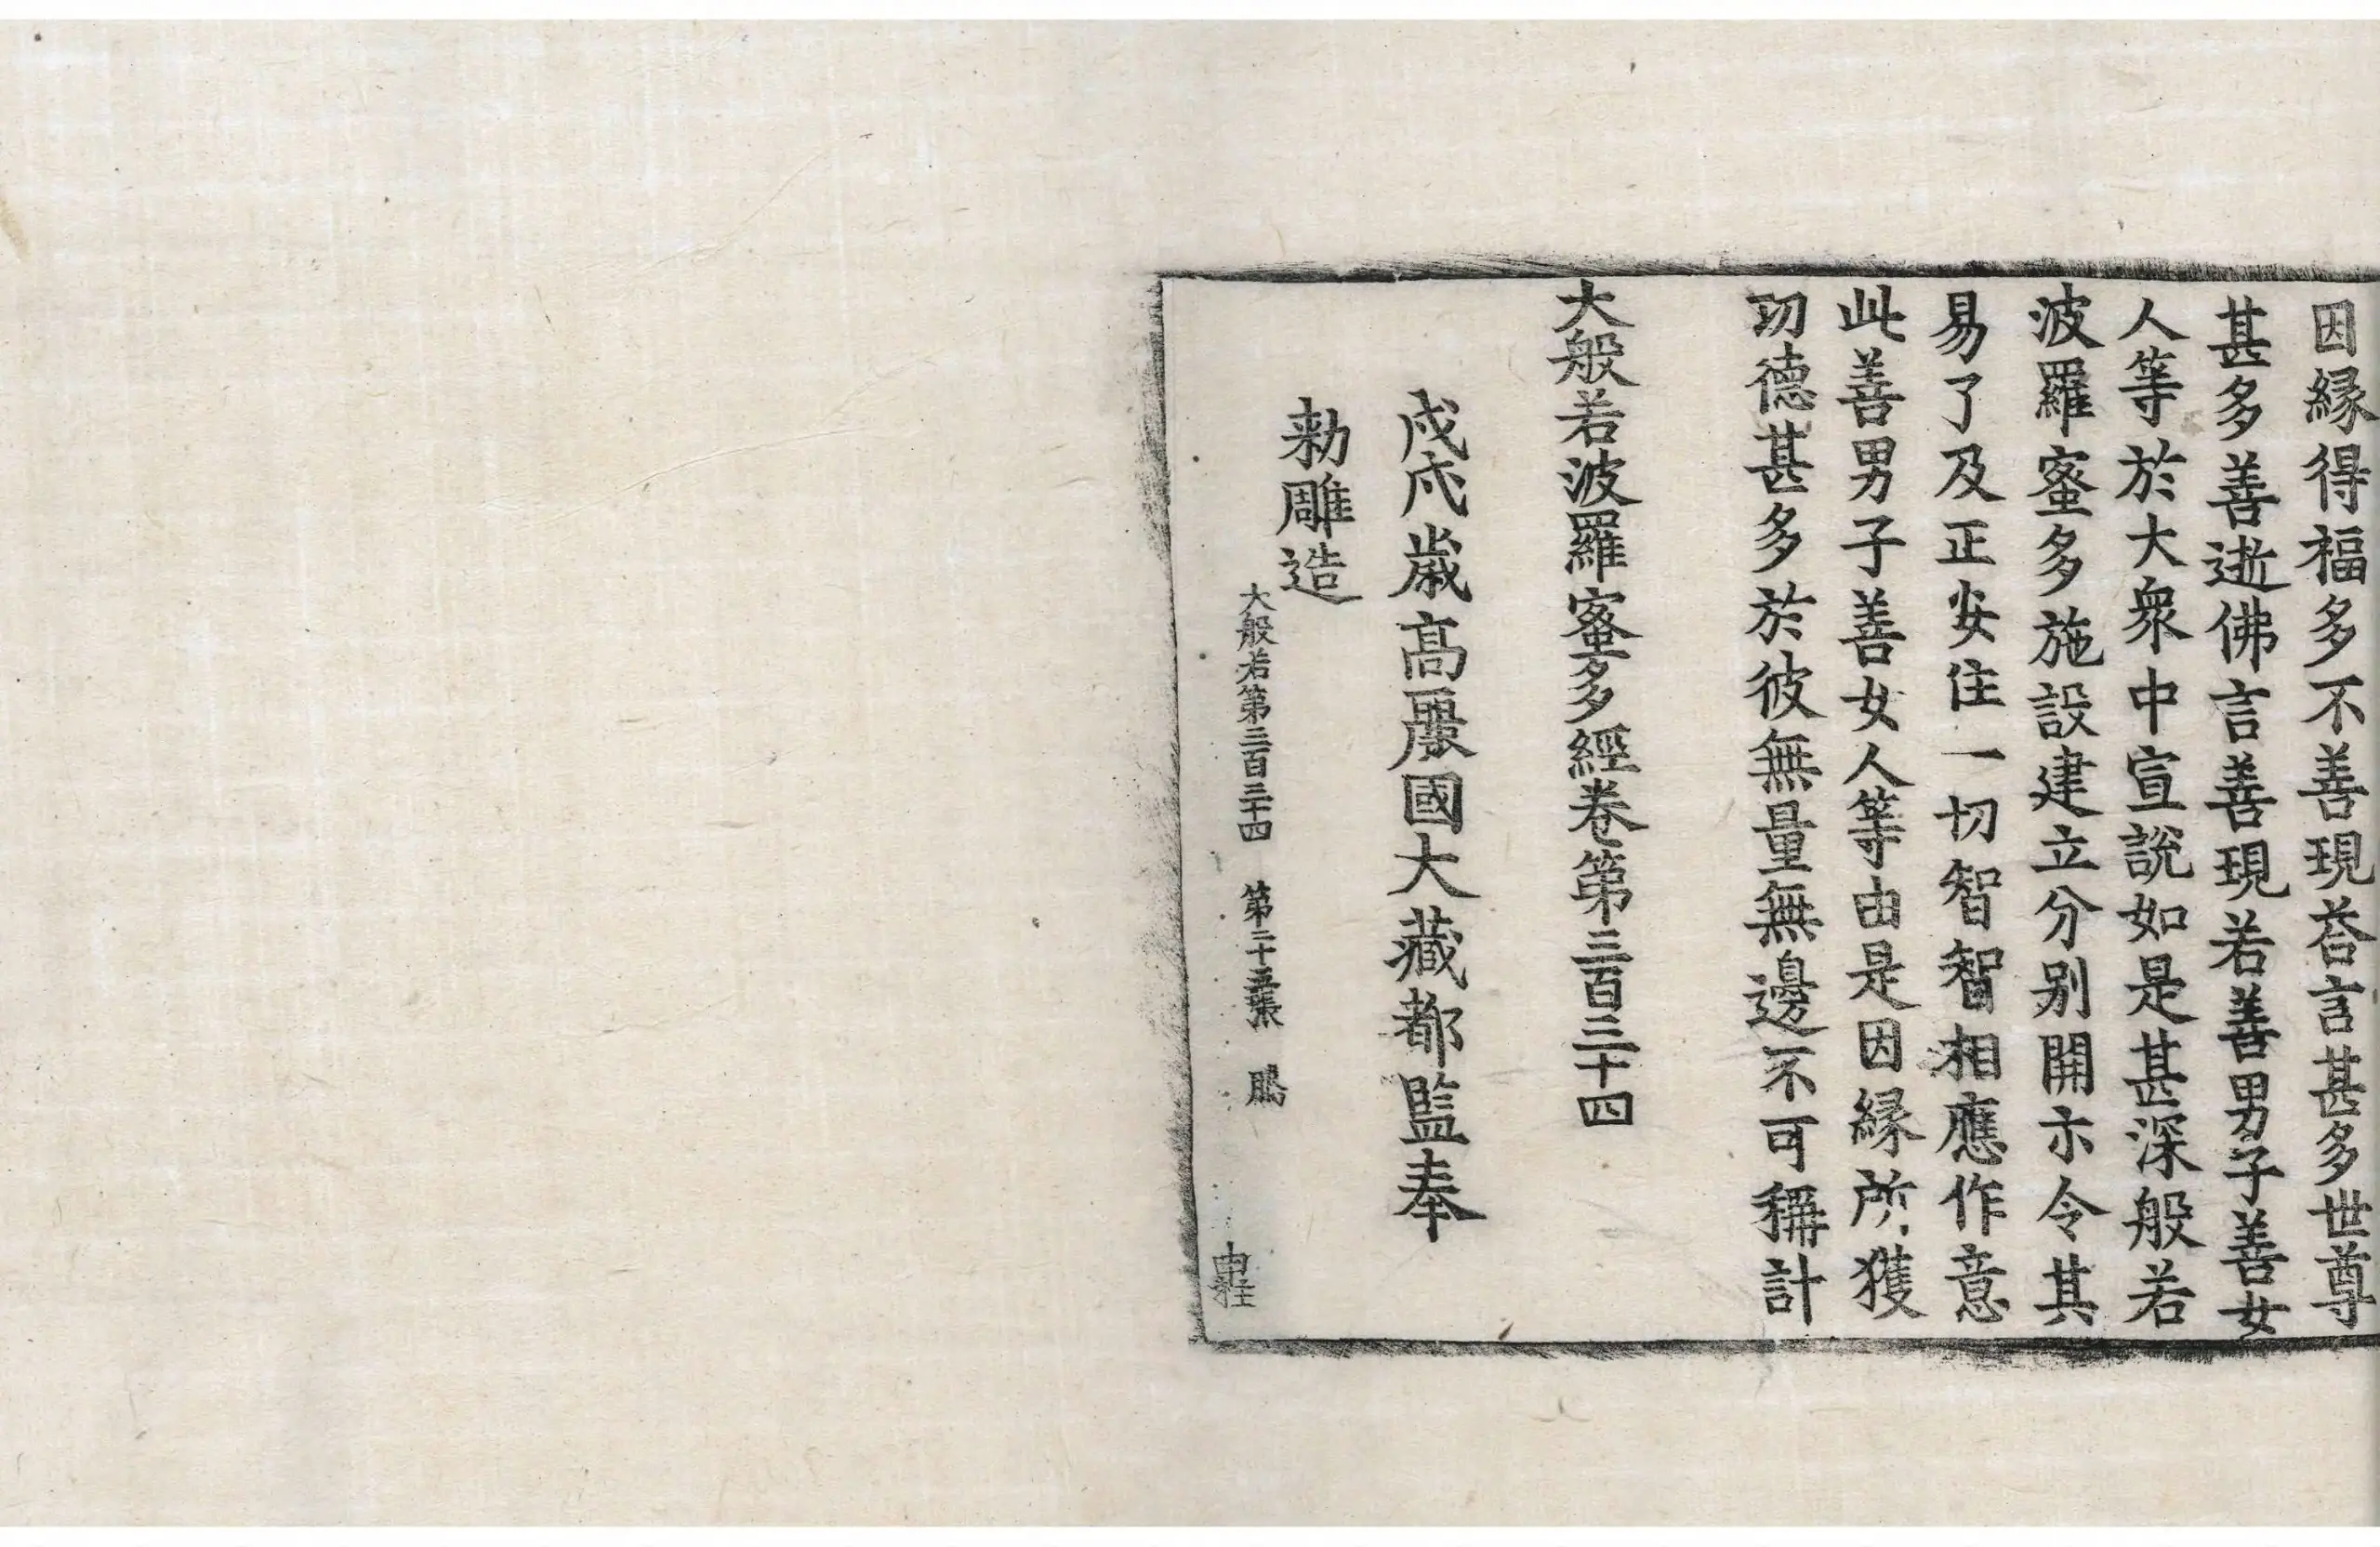 因縁得福多不善現荅言甚多世尊
甚多善逝佛言善現若善男子善女
人等於大衆中宣說如是甚深般若
波羅蜜多施設建立分别開示令其
易了及正安住一切智智相應作意
此善男子善女人等由是因縁所獲
功德甚多於彼無量無邊不可稱計
大般若波羅蜜多經卷第三百三十四
戊戌歲高麗國大藏都監奉
勑雕造
大般若第三百三十四 第二十五張 鵾